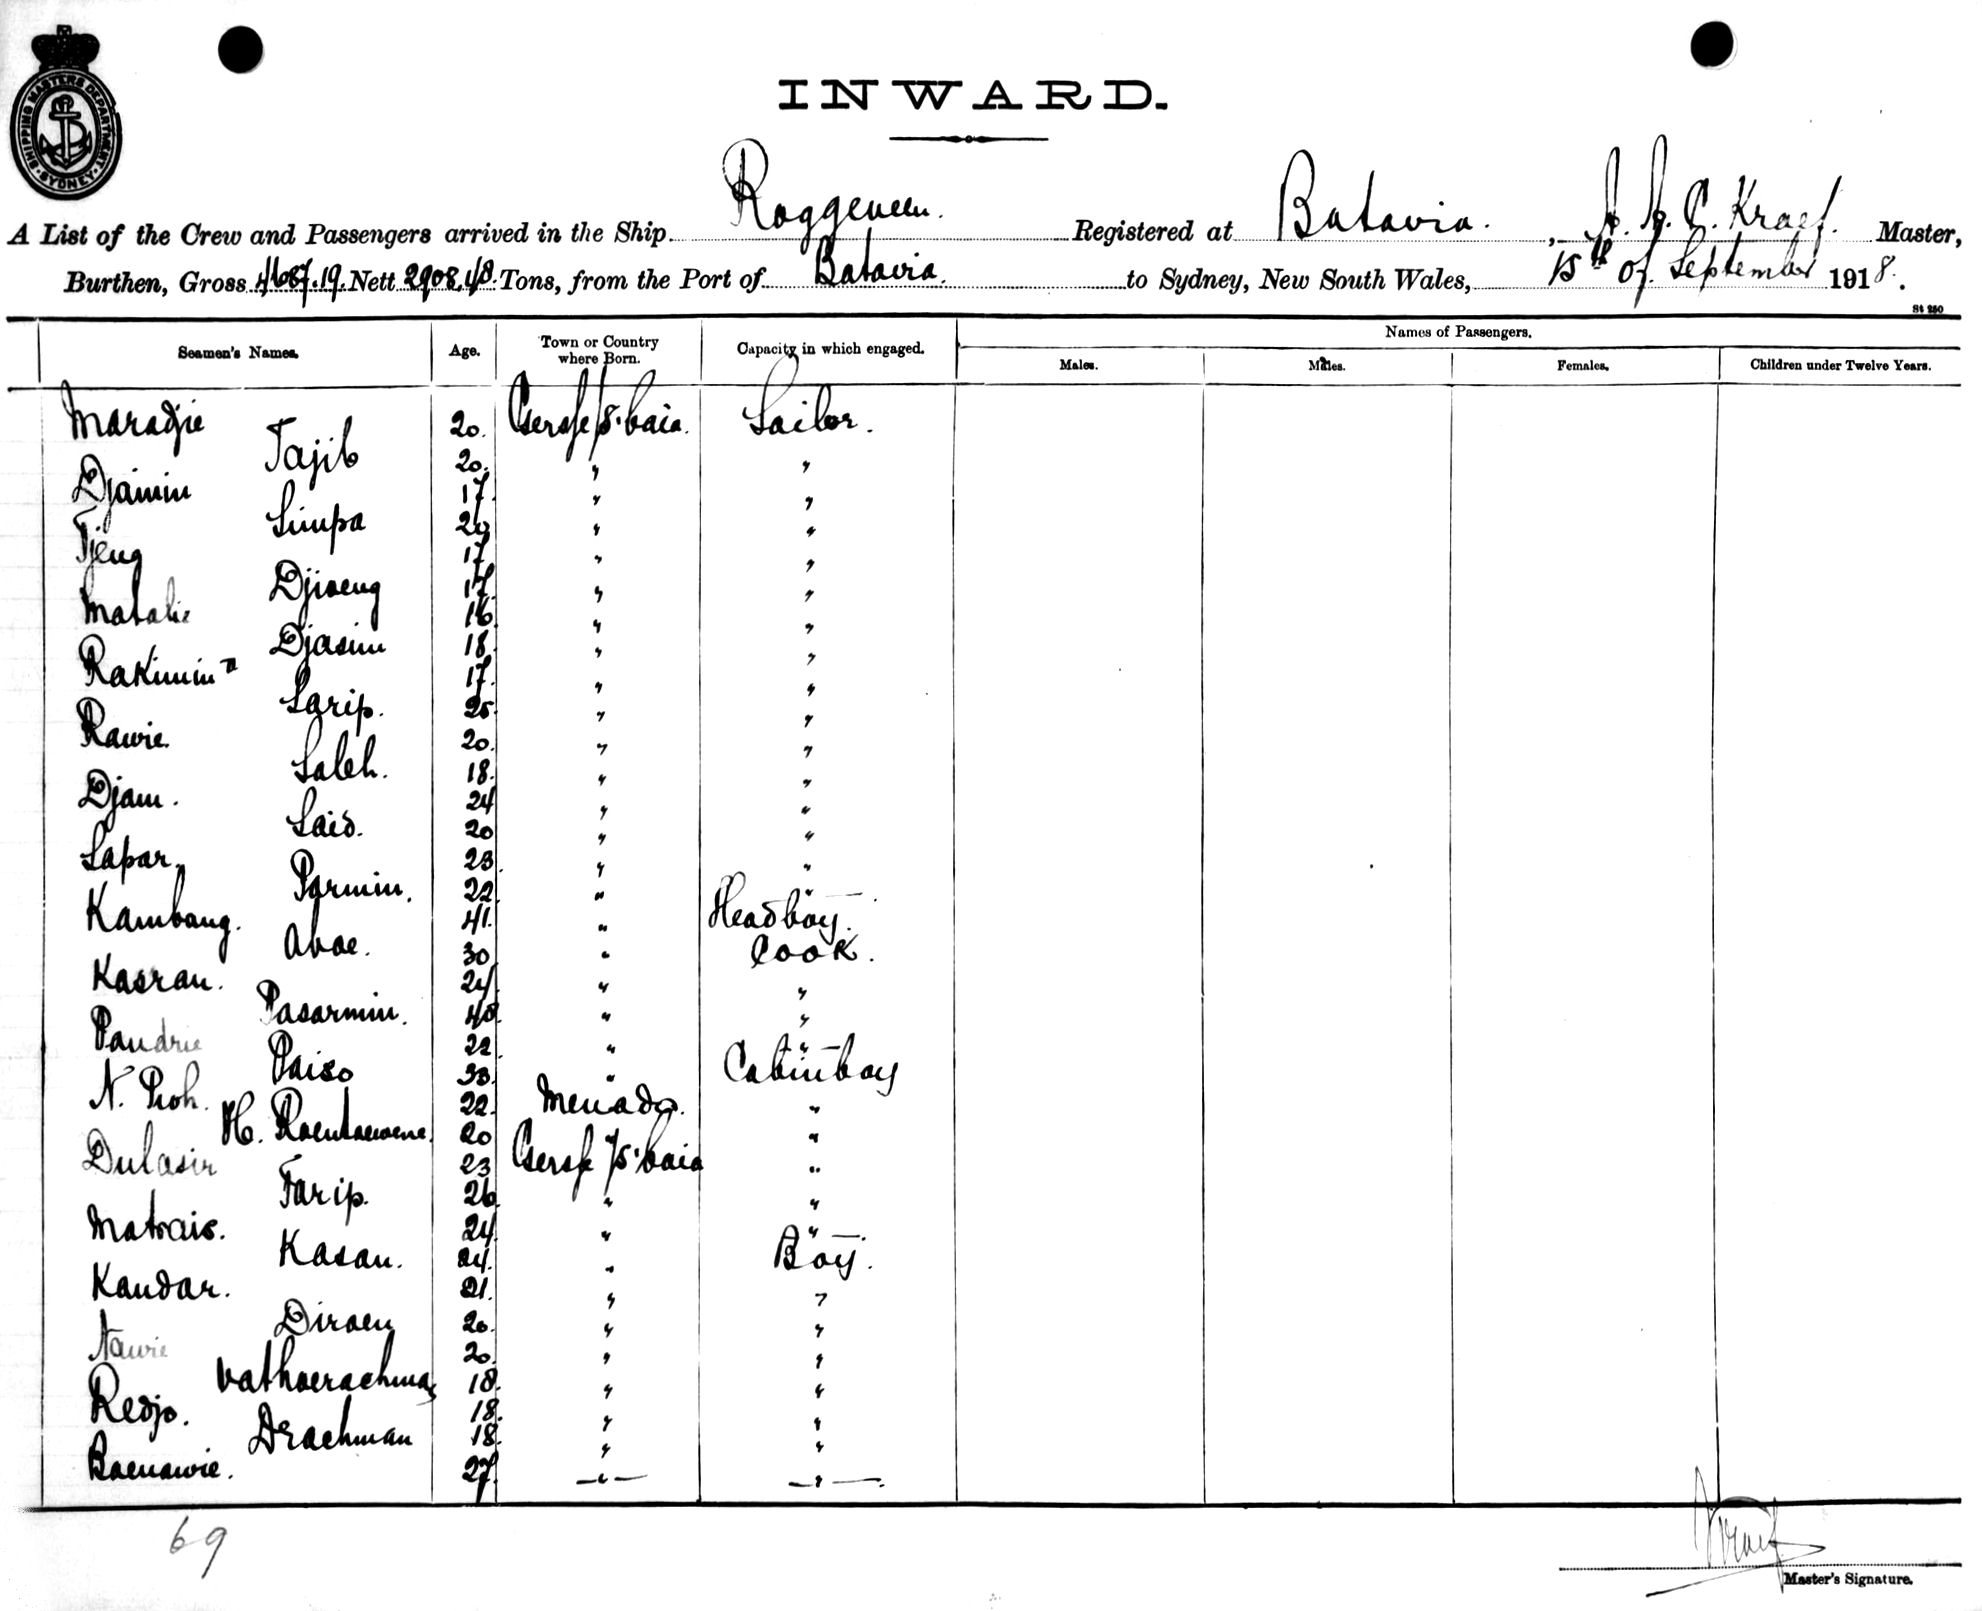 SHIPPING MASTERS DEPARTMENT
SYDNEY
INWARD.
A List of the Crew and Passengers arrived in the Ship Roggeveen. Registered at Batavia. , A. A. C. Kraef. Master,
Burthen, Gross 4687.19. Nett 2908.48. Tons, from the Port of Batavia. to Sydney, New South Wales, 15th of September 1918.
St 250
Seamen's Names. Age. Town or Country where Born. Capacity in which engaged. Names of Passengers.
Males. Males. Females. Children under Twelve Years.
Maradjie 20. Gersje/S'baia. Sailor.
Tajib 20. " "
Djaimin 17. " "
Simpa 20 " "
Tjeng 17 " "
Djioeng 17. " "
Matalie 16 " "
Djasim 18. " "
Rakimin 17. " "
Sarip. 25. " "
Rawie. 20. " "
Saleh. 18. " "
Djam. 24 " "
Said. 20 " "
Sapar. 23 " "
Parmin. 22. " "
Kambang. 41. " Headboy.
Aboe. 30 " Cook.
Kasran. 24 " "
Pasarmin. 40. " "
Pandrie 22 " "
Paiso 33. " Cabinboy
N. Proh. 22. Menado. "
H. Roentoewene. 20 " "
Dulasir 23 Gersje/S'baia "
Tarip. 26 " "
Matrais. 24 " "
Kasan. 24. " Boy.
Kandar. 21. " "
Diroen 20. " "
Nawie 20. " "
Vathoerachman 18. " "
Redjo. 18. " "
Drachman 18. " "
Baenawie. 27. " "
69
Kraef
Master's Signature.